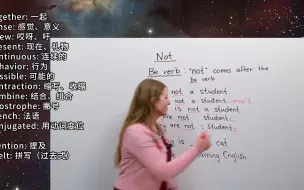 gether: 一起
nse: 感觉、意义
ew: 哎呀、吁
esent: 现在、礼物
ntinuous: 连续的
havior: 行为
ssible: 可能的
ntraction: 缩写、收缩
mbine: 结合、组合
ostrophe: 撇号
ench: 法语
njugated: 用动词变位
ention: 提及
elt: 拼写（过去式）
Not
Be verb: "not" comes after the
be verb
not a student
not a student. aren't
is not a student
not a student.
are not student
is cat
learning English